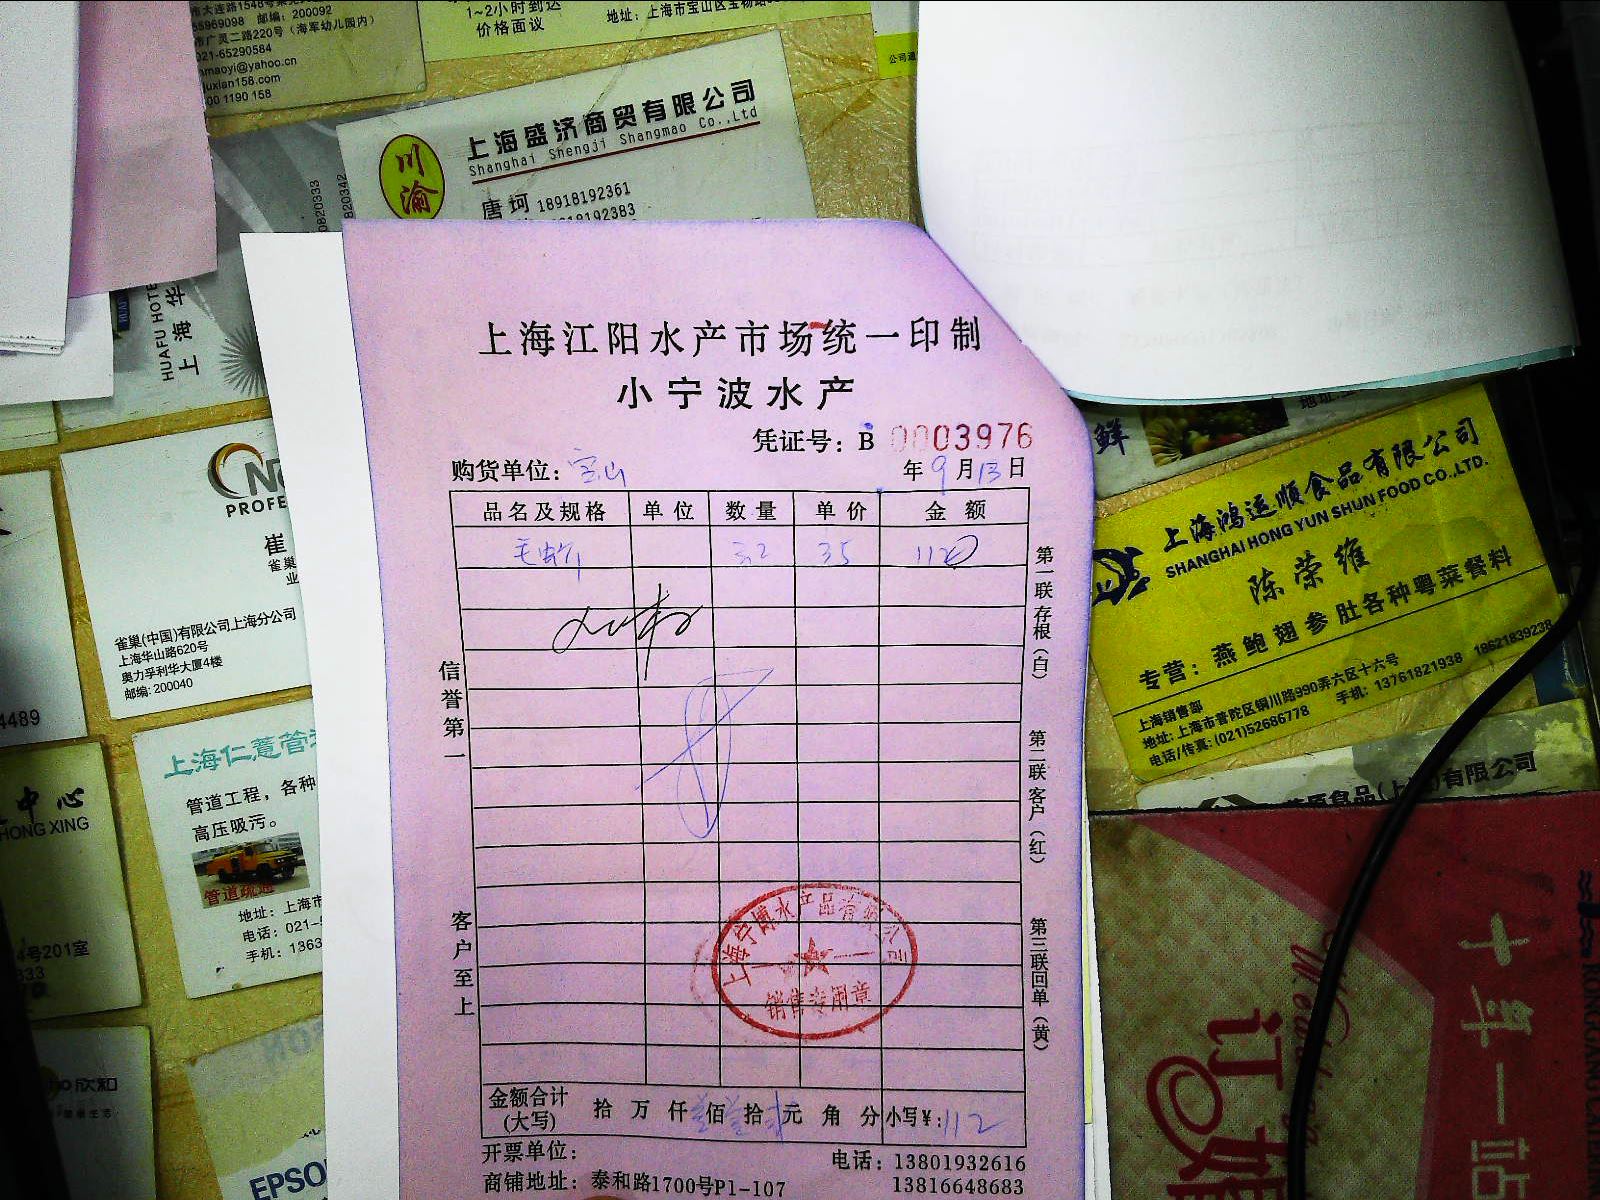 1~2小时到达
价格面议
邮编: 200092
市广灵二路220号（海军幼儿园内）
021-65290584
maoyi@yahoo.cn
uxian158.com
00 1190 158
川渝
上海盛济商贸有限公司
Shanghai Shengji Shangmao Co.,Ltd
唐珂 18918192361
18192383
HUAFU HOTE
上海华
上海江阳水产市场统一印制
小宁波水产
凭证号: B 0003976
购货单位: 宝山 年9月13日
品名及规格 单位 数量 单价 金额
毛蚶 32 35 1120
信誉第一
客户至上
第一联存根（白）
第二联客户（红）
第三联回单（黄）
上海宁博水产品有限公司
销售专用章
金额合计
(大写) 拾 万 仟 佰 拾 元 角 分 小写¥: 112
开票单位:
电话: 13801932616
商铺地址: 泰和路1700号P1-107
13816648683
PROFE
崔
雀巢
业
雀巢(中国)有限公司上海分公司
上海华山路620号
奥力孚利华大厦4楼
邮编: 200040
4489
上海仁薏管
管道工程, 各种
高压吸污。
管道疏通
地址: 上海市
电话: 021-5
手机: 1363
中心
HONG XING
4号201室
333
欣和
EPSO
鲜
上海鸿运顺食品有限公司
SHANGHAI HONG YUN SHUN FOOD CO.,LTD.
陈荣维
专营: 燕鲍翅参肚各种粤菜餐料
上海销售部
地址: 上海市普陀区铜川路990弄六区十六号
电话/传真: (021)52686778 手机: 13761821938 18621839238
食品(上海)有限公司
十年一站